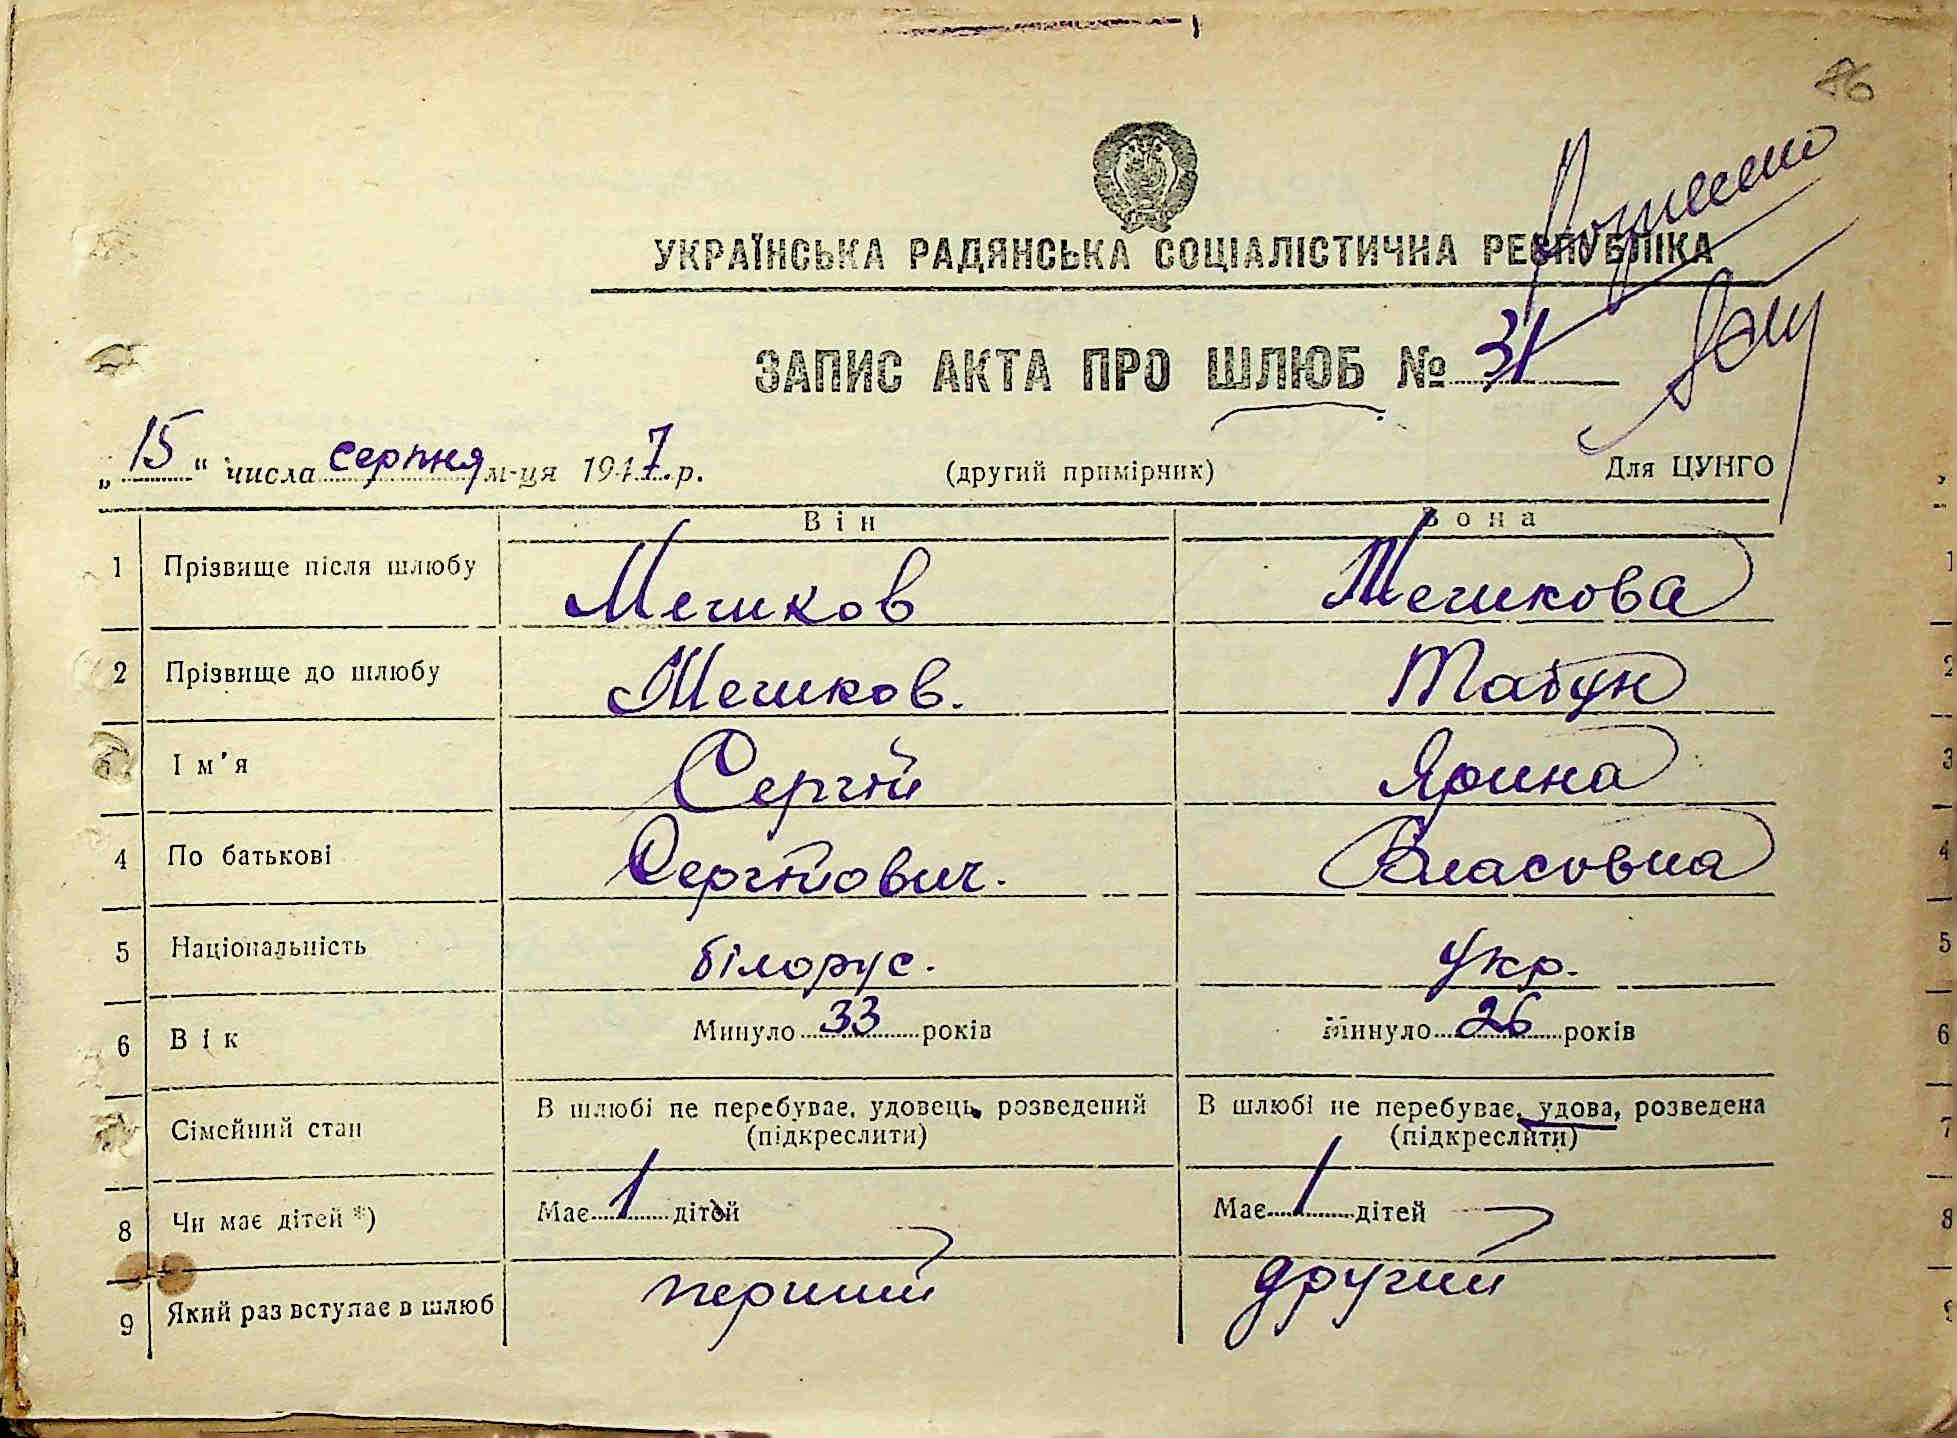 86
УКРАЇНСЬКА РАДЯНСЬКА СОЦІАЛІСТИЧНА РЕСПУБЛІКА
ЗАПИС АКТА ПРО ШЛЮБ № 31
„15“ числа серпня м-ця 1947 р. (другий примірник) Для ЦУНГО
Він Вона
1 Прізвище після шлюбу Мешков Мешкова 1
2 Прізвище до шлюбу Мешков. Табун 2
Ім'я Сергій Ярина 3
4 По батькові Сергійович. Власовна 4
5 Національність білорус. укр. 5
6 Вік Минуло 33 років Минуло 26 років 6
Сімейний стан В шлюбі не перебуває, удовець, розведений (підкреслити) В шлюбі не перебуває, удова, розведена (підкреслити) 7
8 Чи має дітей *) Має 1 дітей Має 1 дітей 8
9 Який раз вступає в шлюб перший другий 9